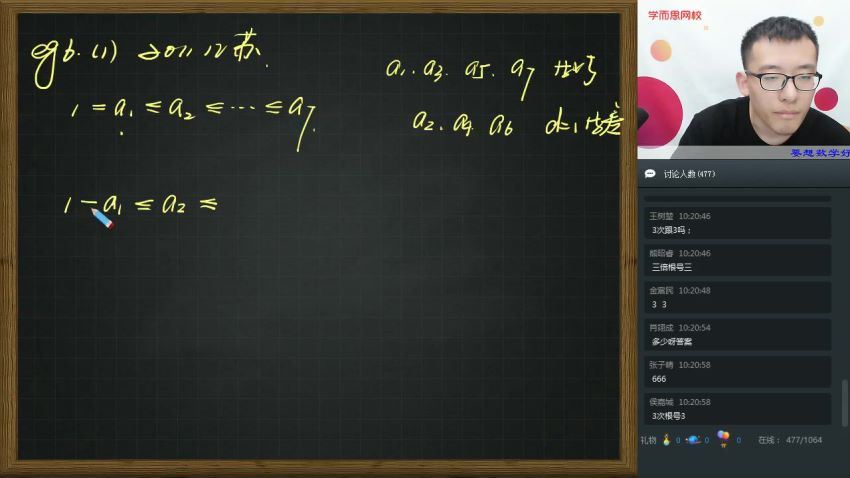 eg 6. (1) 2011 江苏.
a₁. a₃. a₅. a₇ 成等比
1 = a₁ ≤ a₂ ≤ ... ≤ a₇.
a₂. a₄. a₆ d=1 等差
1 = a₁ ≤ a₂ ≤
学而思网校
要想数学好
讨论人数(477)
10:20:46
3次跟3吗；
熊昭睿 10:20:46
三倍根号三
10:20:48
3 3
肖翊成 10:20:54
多少呀答案
张子晴 10:20:58
666
侯嘉城 10:20:58
3次根号3
礼物 0 0 0 在线： 477/1064